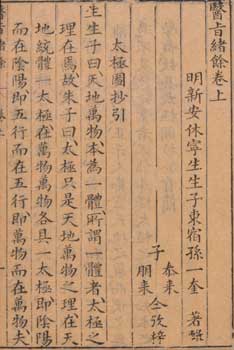 醫旨緒餘卷上
明新安休寧生生子東宿孫一奎著輯
子
泰來
朋來
仝攷梓
太極圖抄引
生生子曰天地萬物本為一體所謂一體者太極之
理在焉故朱子曰太極只是天地萬物之理在天
地統體一太極在萬物萬物各具一太極即陰陽
而在陰陽即五行而在五行即萬物而在萬物夫